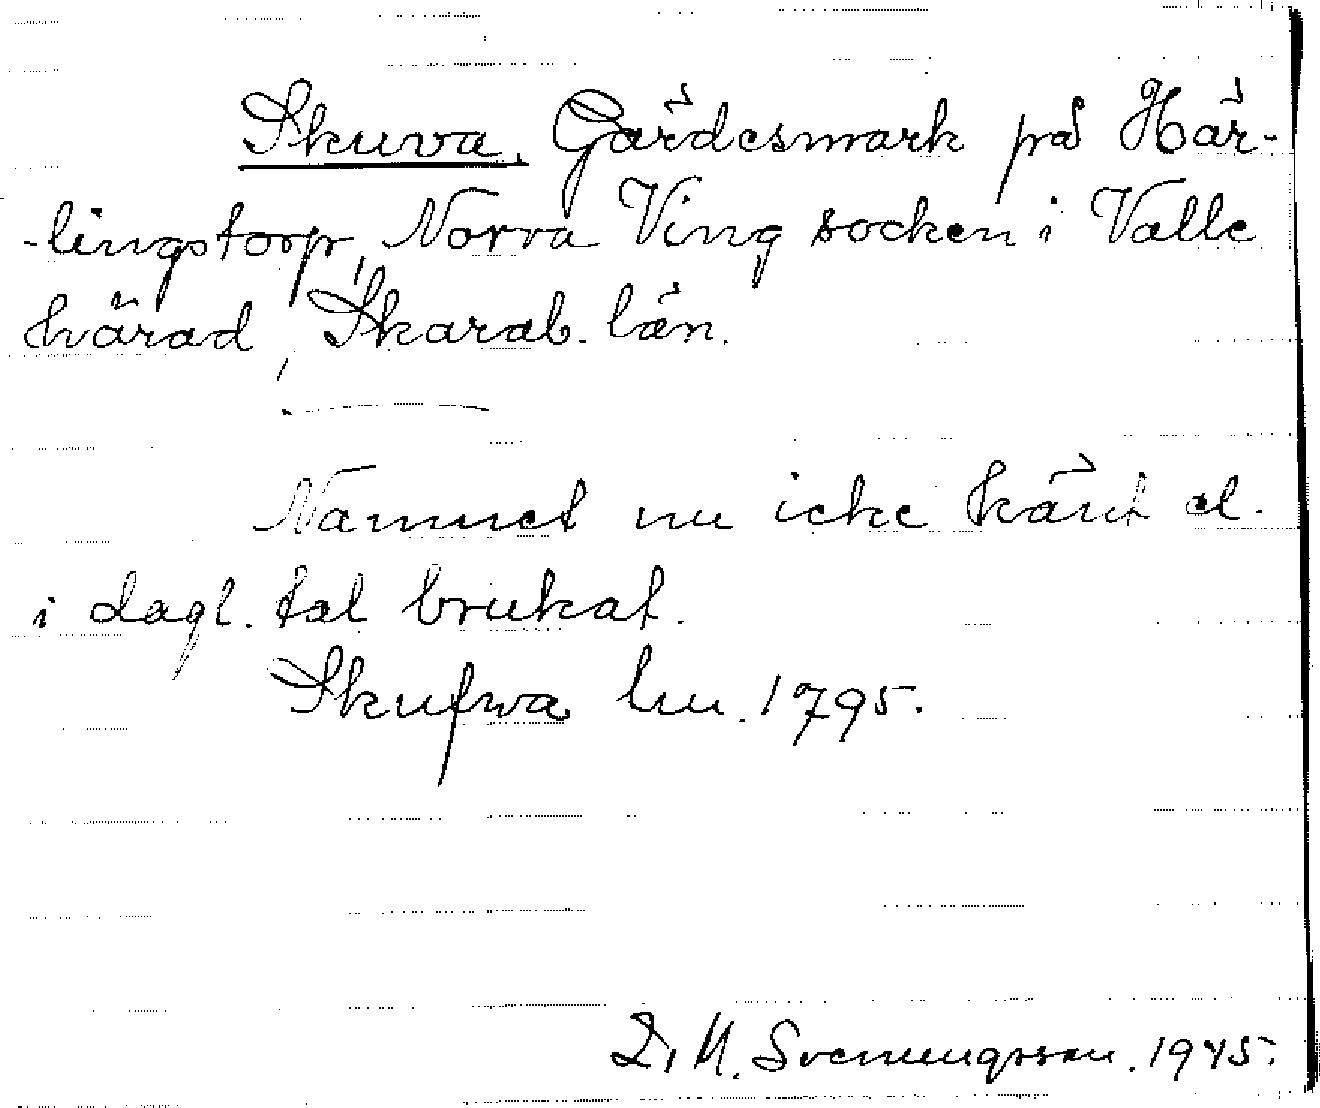 Skuva. Gärdesmark på Här-
-lingstorp, Norra Ving socken i Valle
härad, Skarab. län.
Namnet nu icke känt el.
i dagl. tal brukat.
Skufwa lm. 1795.
D. M. Svenungsson. 1945.